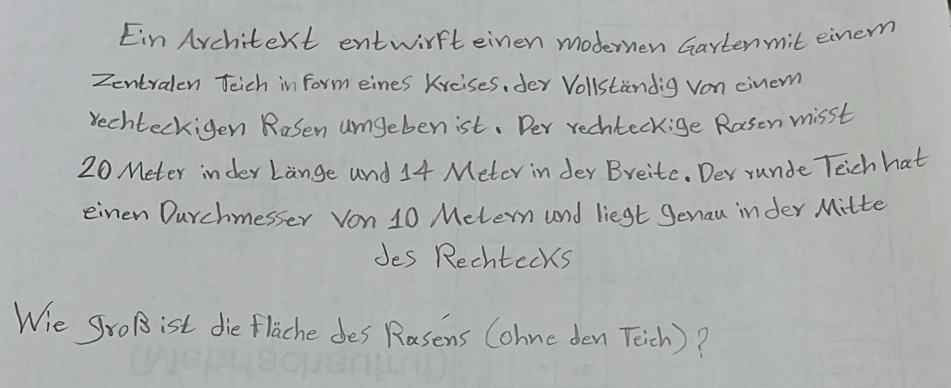 Ein Architekt entwirft einen modernen Garten mit einem
Zentralen Teich in Form eines Kreises, der Vollständig von einem
rechteckigen Rasen umgeben ist. Der rechteckige Rasen misst
20 Meter in der Länge und 14 Meter in der Breite. Der runde Teich hat
einen Durchmesser von 10 Metern und liegt genau in der Mitte
des Rechtecks
Wie groß ist die Fläche des Rasens (ohne den Teich)?